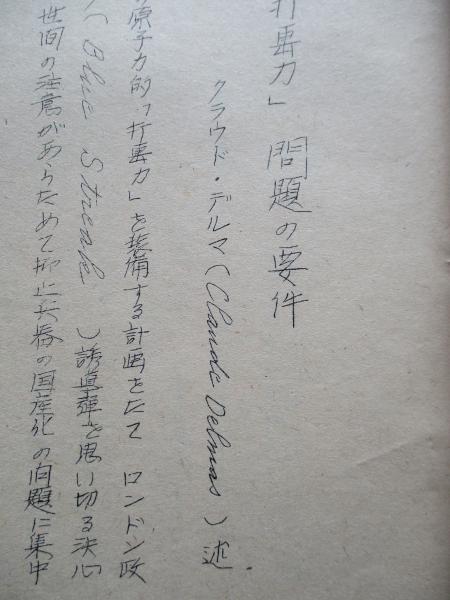 打撃力」 問題の要件
クラウド・デルマ(Claude Delmas)述.
原子力的「打撃力」を装備する計画をたて ロンドン政
(Blue Streak)誘導弾を思い切る決心
世間の注意があらためて抑止兵器の国産化の問題に集中